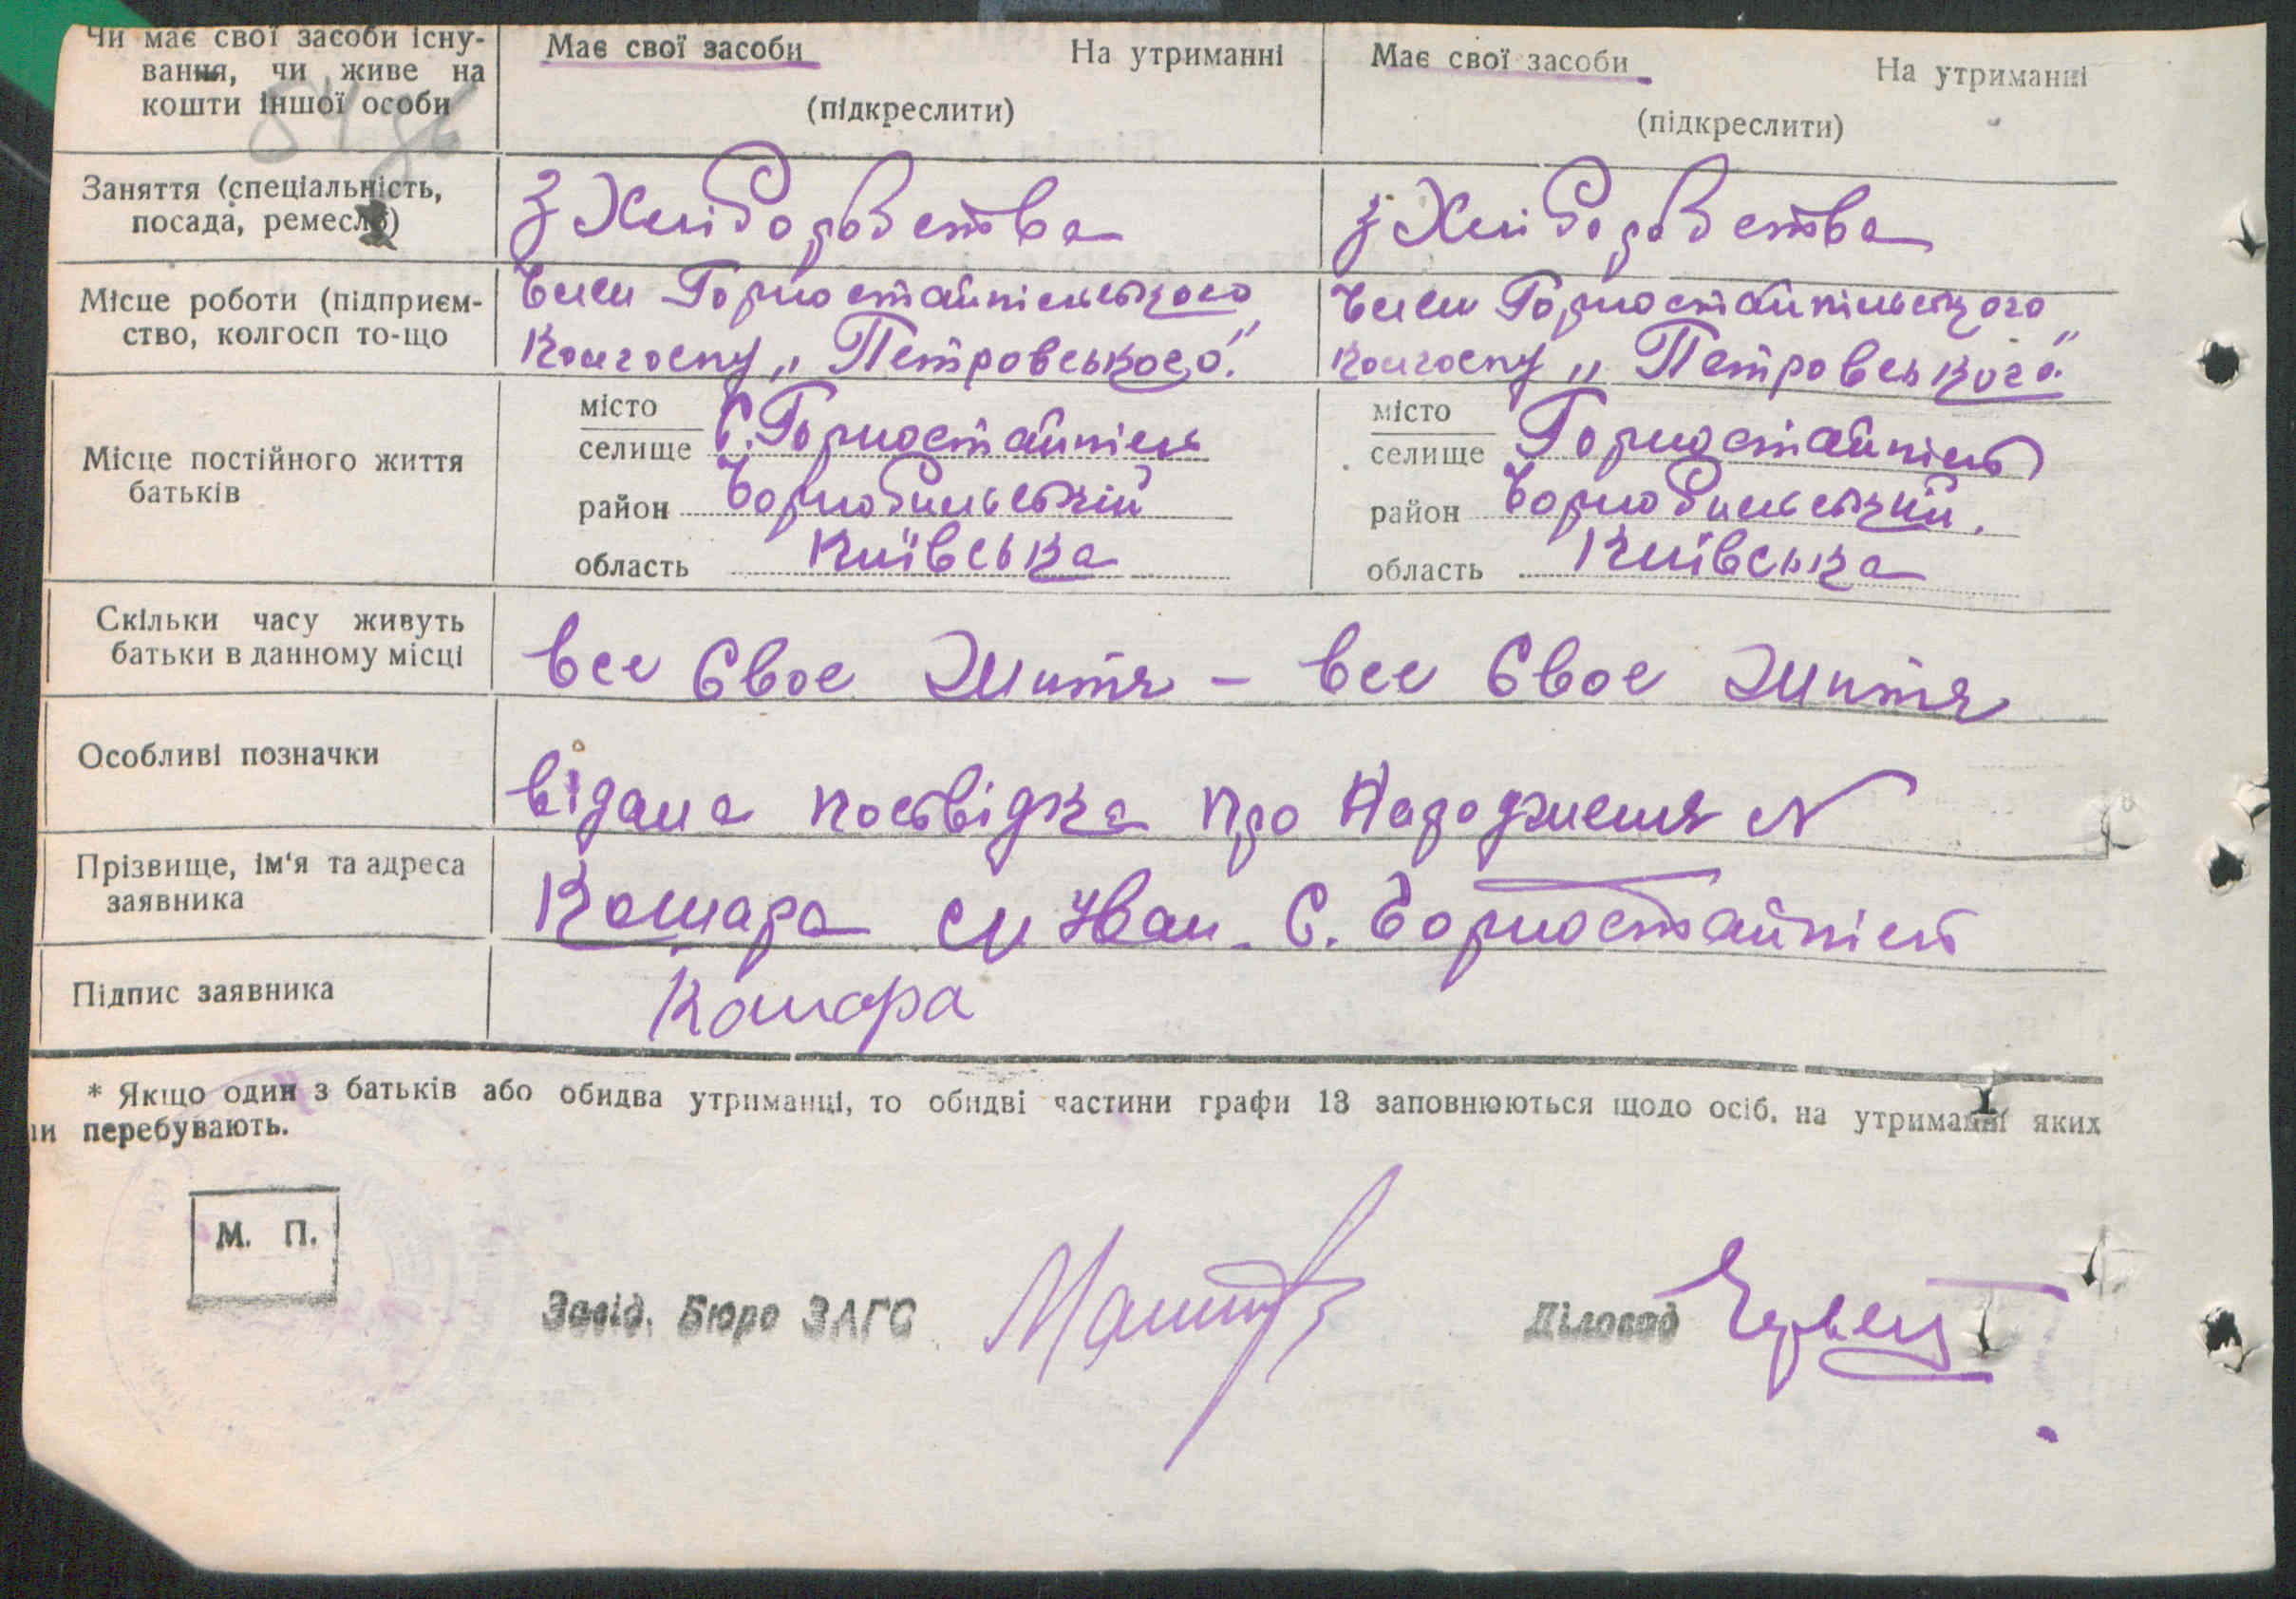 Чи має свої засоби існу- Має свої засоби На утриманні Має свої засоби На утриманні
вання, чи живе на
кошти іншої особи (підкреслити) (підкреслити)
Заняття (спеціальність,
посада, ремесло) З Хлібороbства з Хлібороbства
Місце роботи (підприєм- Член Горностайпільського Член Горностайпільського
ство, колгосп то-що Колгоспу „Петровського" Колгоспу „Петровського"
місто місто
селище С. Горностайпіль селище Горностайпіль
Місце постійного життя
батьків
район Чорнобильський район Чорнобильський
область Київська область Київська
Скільки часу живуть
батьки в данному місці все Своє Життя - все Своє Життя
Особливі позначки
відана посвідка про Народження N
Прізвище, ім'я та адреса
заявника Комара Іван С. Горностайпіль
Підпис заявника Комара
* Якщо один з батьків або обидва утриманці, то обидві частини графи 13 заповнюються щодо осіб, на утриманні яких
перебувають.
М. П.
Завід. Бюро ЗАГС Діловод